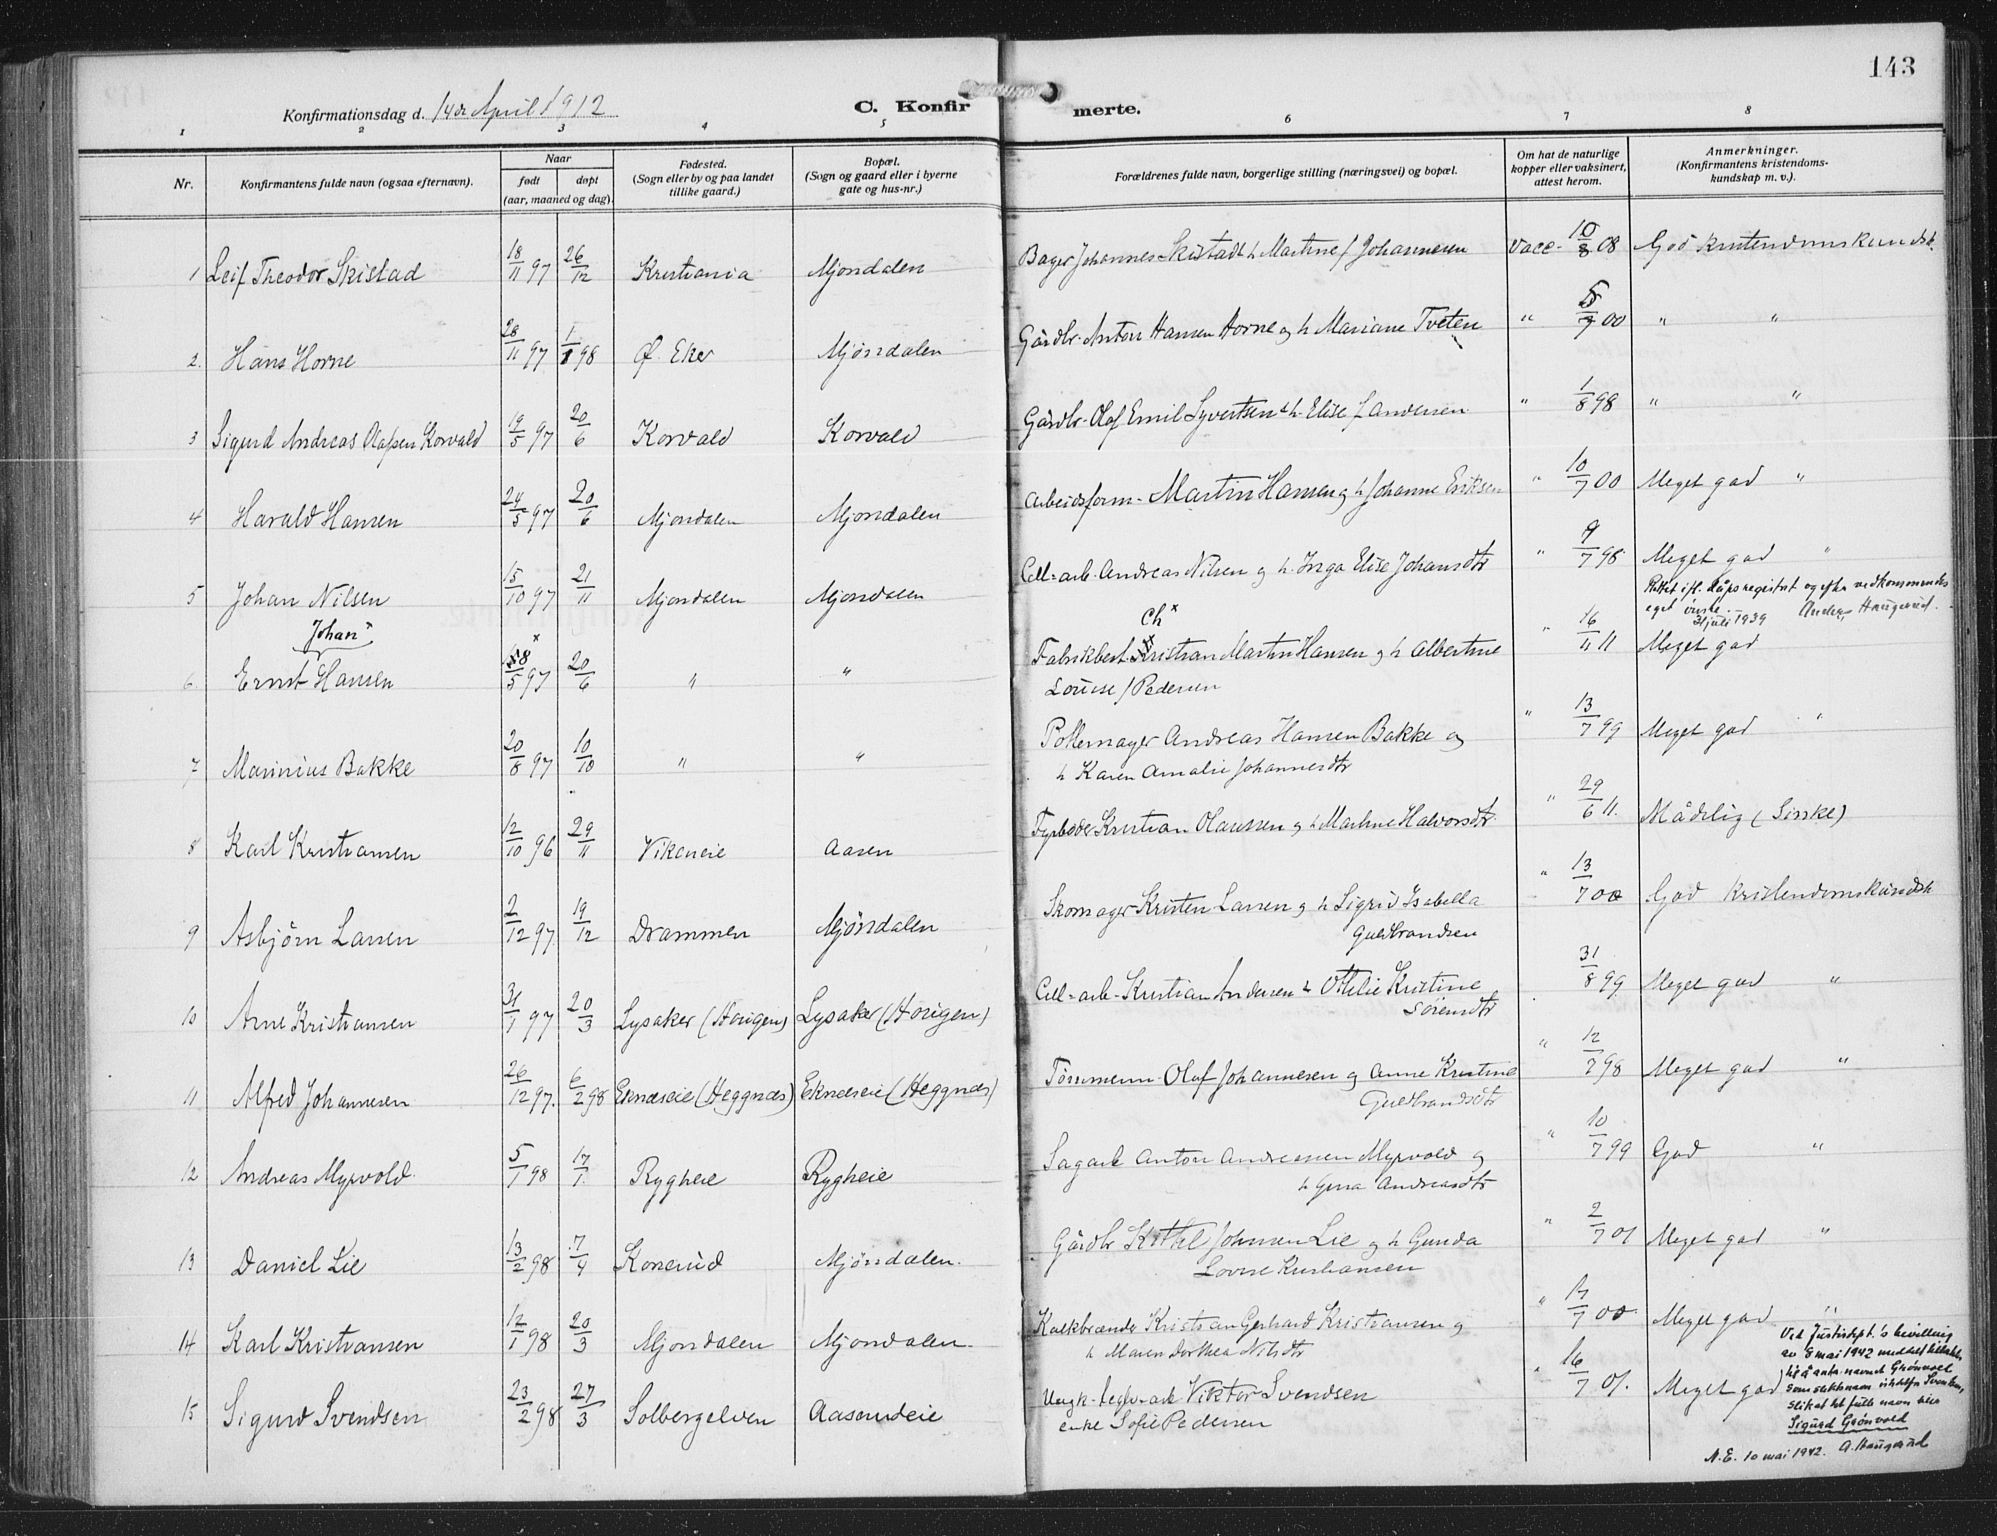 143
Konfirmationsdag d. 14de April 1912
C. Konfirmerte.
1 2 3 4 5 6 7 8
Nr. Konfirmantens fulde navn (ogsaa efternavn). Naar født døpt (aar, maaned og dag). Fødested. (Sogn eller by og paa landet tillike gaard.) Bopæl. (Sogn og gaard eller i byerne gate og hus-nr.) Forældrenes fulde navn, borgerlige stilling (næringsvei) og bopæl. Om hat de naturlige kopper eller vaksinert, attest herom. Anmerkninger. (Konfirmantens kristendoms-kundskap m. v.).
1 Leif Theodor Skistad 18/11 97 26/12 Kristiania Mjøndalen Bager Johannes Skistad & h. Martine f Johannesen Vacc. 10/8 08 God kristendomskundsk.
2. Hans Horne 28/11 97 1/1 98 Ø. Eker Mjøndalen Gårdbr. Anton Hansen Horne og h Mariane Tveten " 5/7 00 " "
3 Sigurd Andreas Olafsen Korvald 19/5 97 20/6 Korvald Korvald Gårdbr. Olaf Emil Syvertsen & h. Elise f Andersen " 1/8 98 " "
4 Harald Hansen 24/5 97 20/6 Mjøndalen Mjøndalen Arbeidsform. Martin Hansen og h Johanne Eriksen " 10/7 00 Meget god "
5 Johan Nilsen 15/10 97 21/11 Mjøndalen Mjøndalen Cell=arb. Andreas Nilsen og h. Inga Elise Johansdtr " 9/7 98. Meget god "
Rettet ifl. dåpsregistret og efter vedkommendes
eget ønske.
31 juli 1939 Anders Haugerud.
Johan x
6. Ernst Hansen 8/5 97 x 20/6 " " Fabrikbest. Kristian Martin Hansen og h Albertine " 16/11 11 Meget god
Ch x
Louise f Pedersen
7 Marinius Bakke 20/8 97 10/10 " " Pottemager Andreas Hansen Bakke og " 13/7 99 Meget god "
h Karen Amalie Johannesdtr
8 Karl Kristiansen 12/10 96 29/11 Vikeneie Aasen Fyrbøder Kristian Olaussen og h Martine Halvorsdtr. " 29/6 11. Mådelig (Sinke)
9 Asbjørn Larsen 2/12 97 19/12 Drammen Mjøndalen Skomager Kristen Larsen og h Sigrid Isabella " 13/7 00 God kristendomskundsk
Guldbrandsen
10 Arne Kristiansen 31/1 97 20/3 Lysaker (Horigen) Lysaker (Horigen) Cell=arb. Kristian Andersen & Othilie Kristine 31/8 99 Meget god "
Sørensdtr
11 Alfred Johannesen 26/12 97. 6/2 98 Eknæseie (Heggnæs) Eknæseie (Heggnæs) Tømmerm. Olaf Johannesen og Anne Kristine " 12/7 98 Meget god "
Guldbrandsdtr
12 Andreas Myrvold 5/1 98 17/7 Rygheie Rygheie Sagarb Anton Andreassen Myrvold og " 10/7 99 God "
h Gena Andreasdtr
13 Daniel Lie 13/2 98 7/4 Konerud Mjøndalen. Gårdbr Kittel Johnsen Lie og h Gunda " 2/7 01 Meget god "
Lovise Kristiansen
14 Karl Kristiansen 12/1 98 20/3 Mjøndalen Mjøndalen. Kalkbrænder Kristian Gerhard Kristiansen og " 17/7 00. Meget god "
h Maren Dorthea Nilsdtr
15 Sigurd Svendsen 23/2 98 27/3 Solbergelven Aasendeie Viktor Svendsen " 16/7 01. Meget god
enke Sofie Pedersen
Ved Justisdpt.'s bevilling
av 8 mai 1942
å anta navnet Grönvold
som slektsnavn istedetfor Svendsen,
slik at fulle navn blir
Sigurd Grönvold
N.E. 10 mai 1942. A. Haugerud